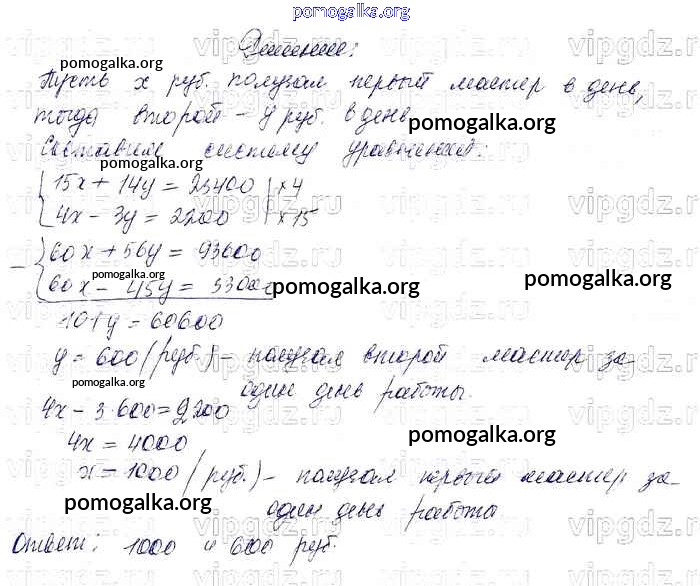 pomogalka.org
Решение:
Пусть x руб. получал первый мастер в день,
тогда второй - y руб. в день
Составим систему уравнений:
15x + 14y = 23400 | ×4
4x - 3y = 2200 | ×15
60x + 56y = 93600
60x - 45y = 33000
101y = 60600
y = 600 (руб.) - получал второй мастер за
один день работы.
4x - 3·600 = 2200
4x = 4000
x = 1000 (руб.) - получал первый мастер за
один день работы
Ответ: 1000 и 600 руб.
pomogalka.org
pomogalka.org
pomogalka.org
pomogalka.org
pomogalka.org
pomogalka.org
pomogalka.org
pomogalka.org
pomogalka.org
vipgdz.ru